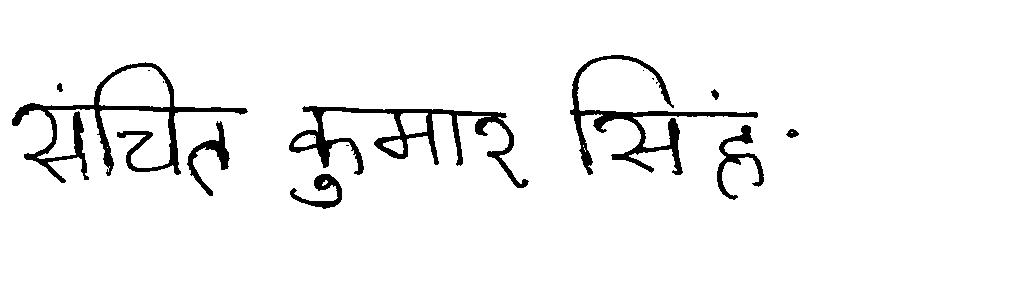 संचित कुमार सिंह.